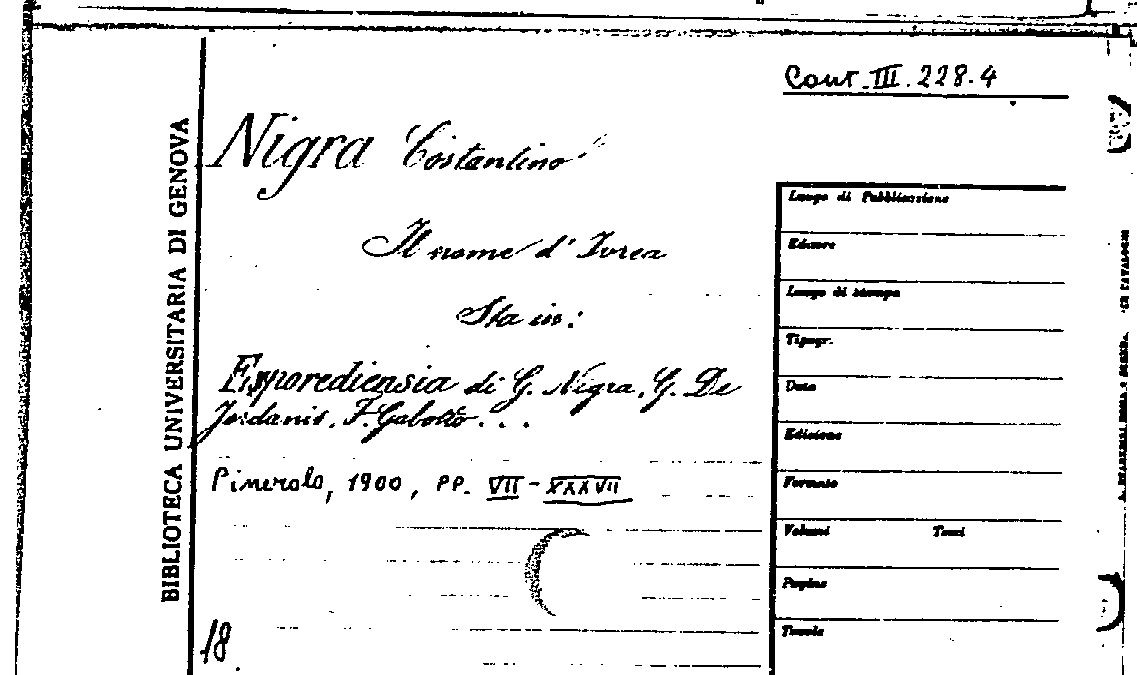 Cont. III. 228.4
Nigra Costantino
Il nome d'Ivrea
Sta in:
Epporediensia di G. Nigra, G. De
Jordanis, F. Gabotto...
Pinerolo, 1900, PP. VII - XXXVII
18
BIBLIOTECA UNIVERSITARIA DI GENOVA
Luogo di Pubblicazione
Editore
Luogo di stampa
Tipogr.
Data
Edizione
Formato
Volumi Tomi
Pagine
Tavole